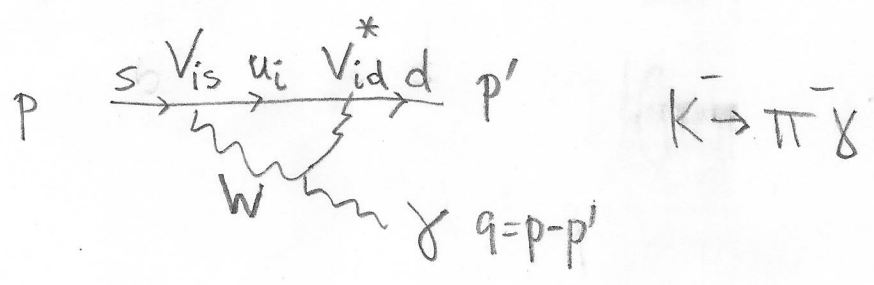 *
s V_is u_i V_id d
p p′ K⁻→π⁻γ
W
γ q=p-p′